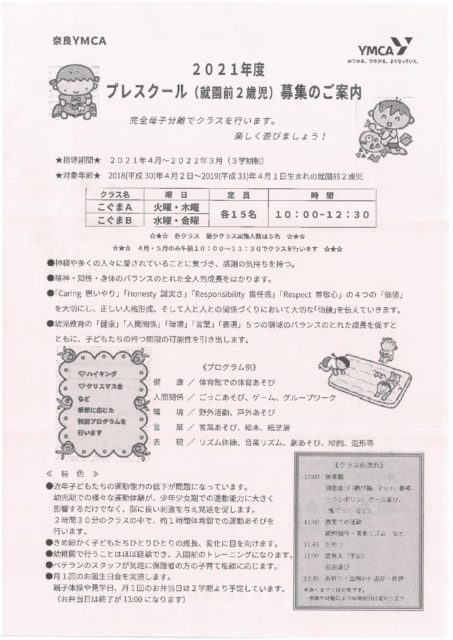 奈良YMCA
YMCA
みつかる。つながる。よくなっていく。
2021年度
プレスクール(就園前2歳児)募集のご案内
完全母子分離でクラスを行います。
楽しく遊びましょう!
★指導期間★ 2021年4月~2022年3月(3学期制)
★対象年齢★ 2018(平成30)年4月2日~2019(平成31)年4月1日生まれの就園前2歳児
クラス名 曜日 定員 時間
こぐまA 火曜・木曜 各15名 10:00~12:30
こぐまB 水曜・金曜
☆★☆ 各クラス 最少クラス実施人数は5名 ☆★☆
☆★☆ 4月・5月のみ午前10:00~11:30でクラスを行います ☆★☆
●神様や多くの人々に愛されていることに気づき、感謝の気持ちを持つ。
●精神・知性・身体のバランスのとれた全人的成長をはかります。
●「Caring 思いやり」「Honesty 誠実さ」「Responsibility 責任感」「Respect 尊敬心」の4つの「価値」
を大切にし、正しい人格形成、そして人と人との関係づくりにおいて大切な「価値」を伝えていきます。
●幼児教育の「健康」「人間関係」「環境」「言葉」「表現」5つの領域のバランスのとれた成長を促すと
ともに、子どもたちの持つ無限の可能性を引き出します。
♡ハイキング
♡クリスマス会
など
季節に応じた
特別プログラムを
行います
《プログラム例》
健康 / 体育館での体育あそび
人間関係 / ごっこあそび、ゲーム、グループワーク
環境 / 野外活動、戸外あそび
言葉 / 言葉あそび、絵本、紙芝居
表現 / リズム体操、音楽リズム、劇あそび、絵画、造形等
≪特色≫
●近年子どもたちの運動能力の低下が問題になっています。
幼児期の様々な運動体験が、少年少女期での運動能力に大きく
影響するだけでなく、脳に良い刺激を与え発達を促します。
2時間30分のクラスの中で、約1時間体育館での運動あそびを
行います。
●きめ細かく子どもたちひとりひとりの成長、変化に目を向けます。
●幼稚園で行うことはほぼ経験でき、入園前のトレーニングになります。
●ベテランのスタッフが気軽に保護者の方の子育て相談に応じます。
●月1回のお誕生日会を実施します。
親子体操や見学日、月1回のお弁当日は2学期より予定しています。
(お弁当日は終了が13:00になります)
《クラスの流れ》
10:00 体育館
トランポリン、ボール遊び、
鬼ごっこ など)
11:00 教室での活動
など
11:45 おやつ
12:00
自由遊び
12:30